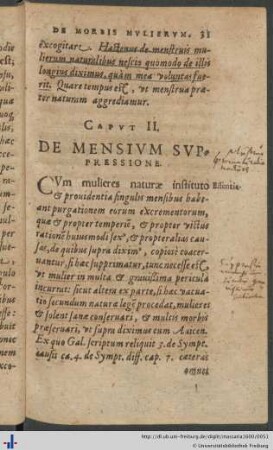 DE MORBIS MVLIERVM. 31
excogitare. Hactenus de menstruis mu-
lierum naturalibus nescio quomodo de illis
longius diximus, quàm mea voluntas fue-
rit. Quare tempus est, vt menstrua præ-
ter naturum aggrediamur.
CAPVT II.
DE MENSIVM SVP-
PRESSIONE.
CVm mulieres naturæ instituto
& prouidentia singulis mensibus habe-
ant purgationem eorum excrementorum,
quæ & propter temperiẽ, & propter victus
rationẽ huiuscemodi sex⁹, & propter alias cau-
sas, de quibus supra dixim⁹, copiosè coacer-
uantur, si hæc supprimatur, tunc necesse est,
vt mulier in multa & grauissima pericula
incurrat: sicut altera ex parte, si hæc vacu-
tio secundum naturæ legẽ procedat, mulieres
& solent sanæ conseruari, & multis morbis
præseruari, vt supra diximus cum Auicen.
Ex quo Gal. scriptum reliquit 3. de Sympt.
causis ca. 4. de Sympt. diff. cap. 7. cæteras
omnes
http://dl.ub.uni-freiburg.de/diglit/massaria1600/0051